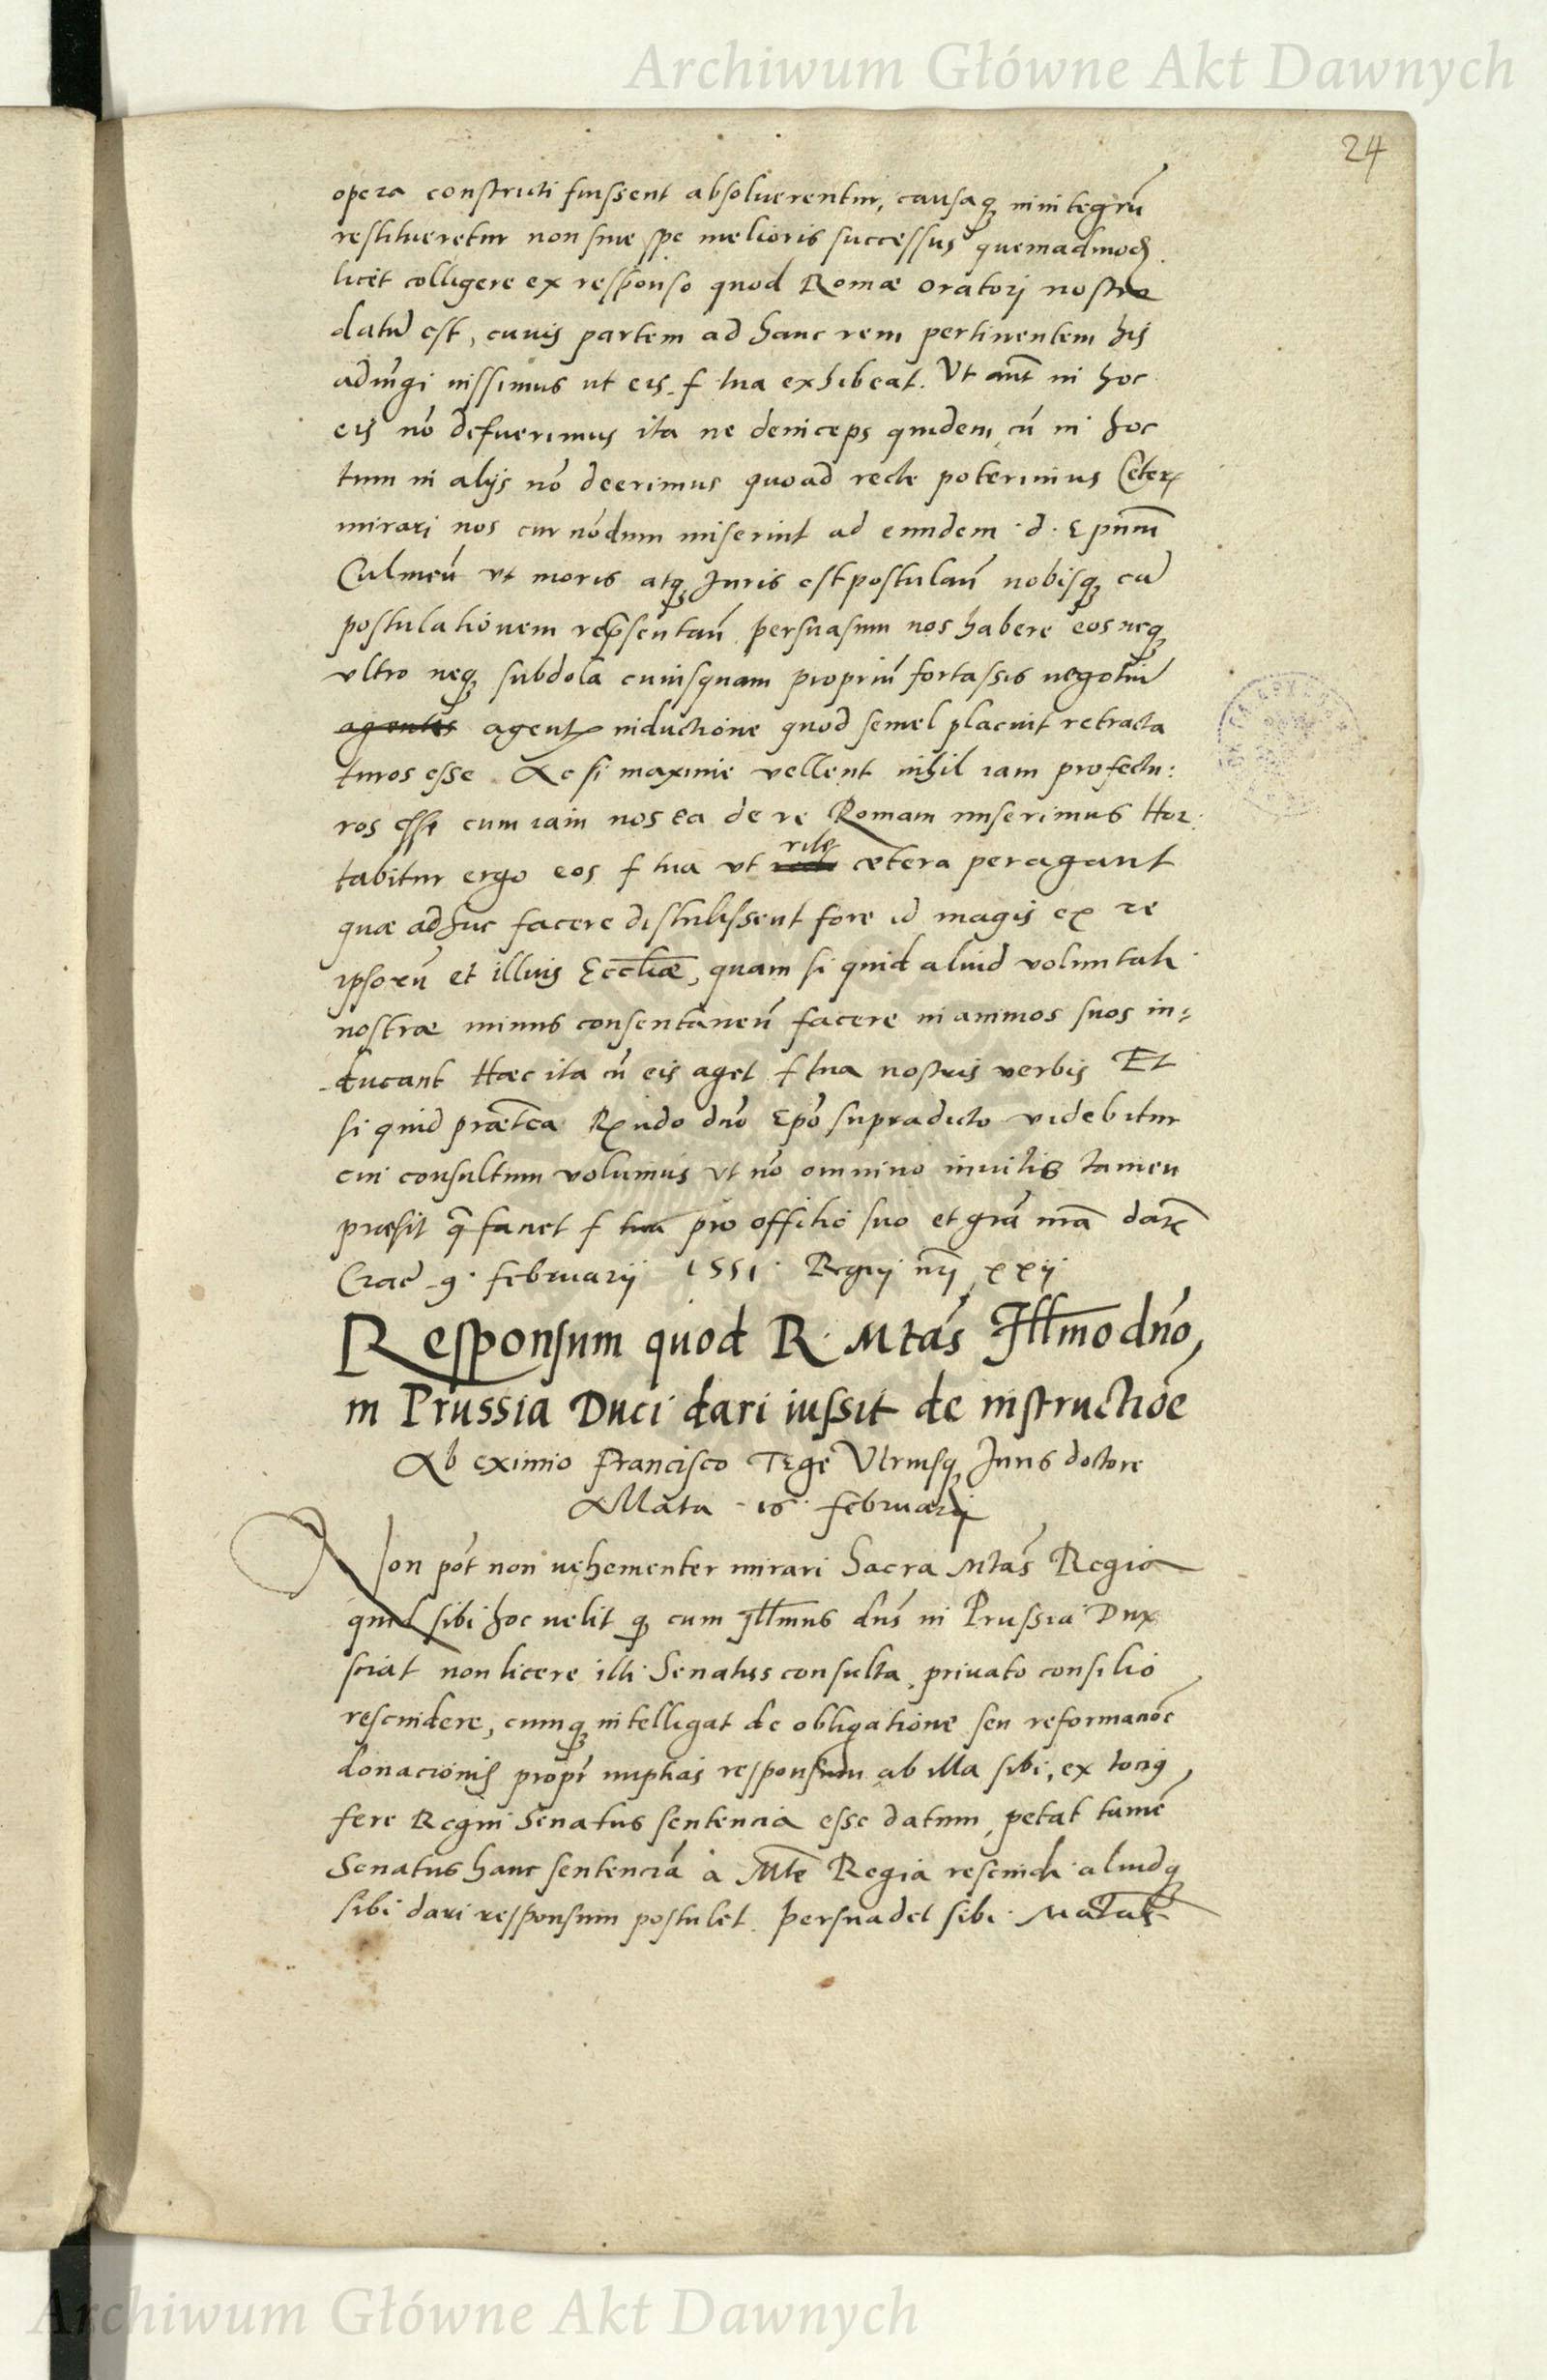 Archiwum Główne Akt Dawnych
24
opera constricti fuissent absoluerentur, causaq, in integrũ
restitueretur non sine spe melioris successus quemadmod
licet colligere ex responso quod Romæ oratorj nostro
datũ est, cuius partem ad hanc rem pertinentem his
adiũgi iussimus ut eis f tua exhibeat. Ut aut̃ in hoc
eis nõ defuerimus ita ne deinceps quidem cũ in hoc
tum in alijs nõ deerimus quoad recte poterimus Ceter
mirari nos cur nõdum miserint ad eundem d. Epum̃
Culmeñ ut moris atq, Juris est postulatũ nobisq, eã
postulationem rep̃sentatũ persuasum nos habere eos neq,
vltro neq, subdola cuiusquam propriũ fortassis negotiũ
agentis agentis inductione quod semel placuit retracta
turos esse Ac si maxime vellent nihil iam profectu:
ros esse cum iam nos ea de re Romam miserimus Hor:
tabitur ergo eos f tua ut rite cætera peragant
quæ adhuc facere distulissent fore id magis ex re
ipsorũ et illius Eccliæ, quam si quid aliud voluntati
nostræ minus consentaneũ facere in animos suos in:
ducant Hæc ita cũ eis aget f tua nostris verbis Et
si quid præterea Rndo dnõ Epõ supradicto videbitur
cui consultum volumus ut nõ omnino inuitis tamen
præsit q̃ faciet f tua pro offitio suo et grã nrã dat̃
Crac 9. februarij 1551. Regnj nrj xxij
Responsum quod R. Mtas Illmo dnõ,
in Prussia Duci dari iussit de instructiõe
Ab eximio Francisco Tege Utriusq, Juris doctore
Allata 16 februarij
Non põt non vehementer mirari Sacra Mtas Regia
quid sibi hoc uelit q cum Illmus dnũs in Prussia Dux
sciat non licere illi Senatus consulta, priuato consilio
rescindere, cumq, intelligat de obligatione seu reformatiõe
donacionis propt̃ nuptias responsum ab illa sibi, ex totius
fere Regni Senatus sentencia esse datum, petat tamẽ
Senatus hanc sentenciã à Mte Regia rescindi aliudq,
sibi dari responsum postulet. Persuadet sibi Matas
Archiwum Główne Akt Dawnych